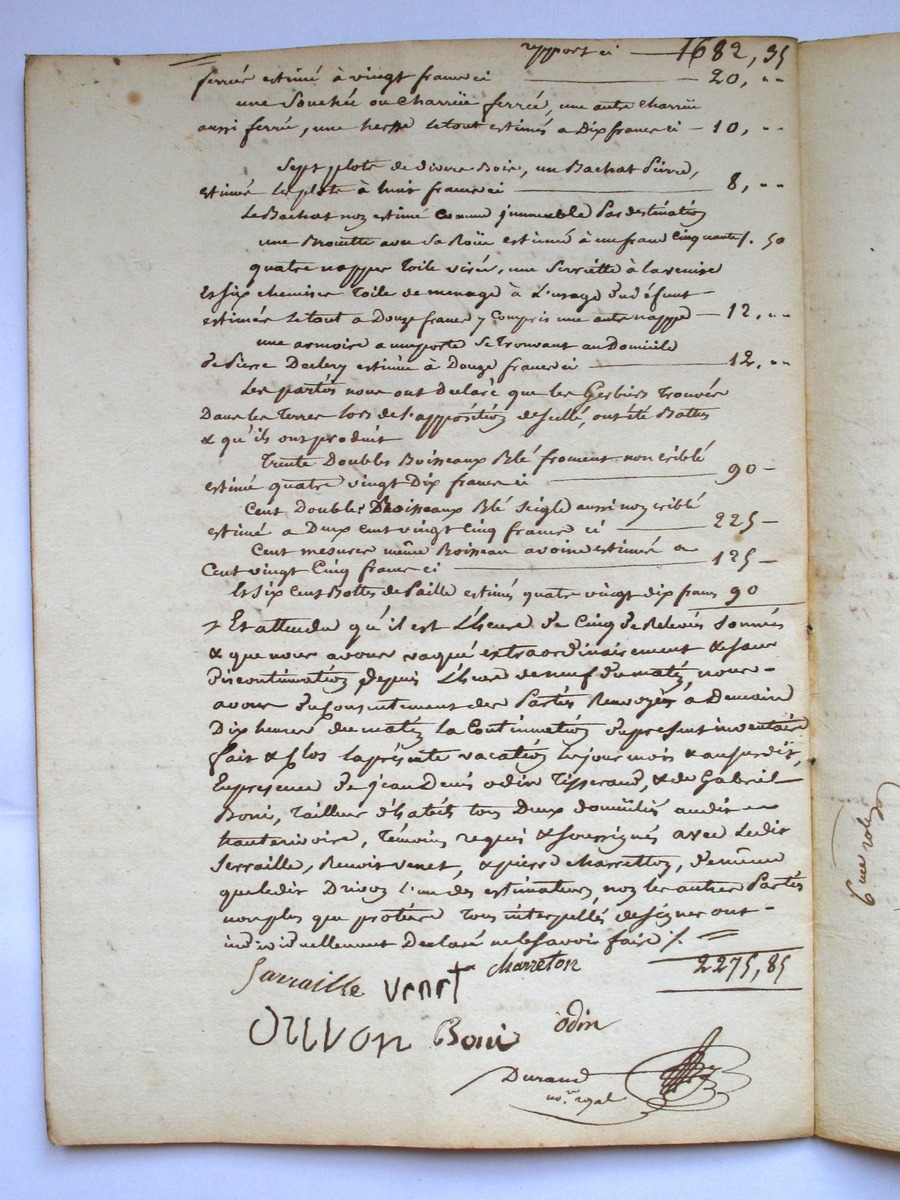 rapport ci 1682, 35
ferrée estimé à vingt francs ci 20, "
une Souchée ou charrüe ferrée, une autre charrüe
aussi ferrée, une herse le tout estimés a Dix francs ci 10, "
Sept plots de divers Bois, un Bachat Pierre,
estimés les plots à huit francs ci 8, "
Le Bachat non estimé comme jmmeuble Par destination
une Brouette avec Sa Roüe estimée à un franc Cinquante 1. 50
quatre nappes Toile , une Serviette à la venise
Et Six chemises Toile de menage à L'usage du défunt
estimés Le tout a Douze francs y compris une autre nappe 12, "
une armoire a une porte Se Trouvant au Domicile
de Pierre estimée à Douze francs ci 12, "
Les parties nous ont Declaré que les Gerbiers Trouvés
Dans les Terres lors de l'apposition de scellé, ont été Battus
& qu'ils ont produit
Trente Doubles Boisseaux Blé froment non criblé
estimé quatre vingt Dix francs ci 90 -
Cent Doubles Boisseaux Blé Seigle aussi non criblé
estimé a Deux cent vingt Cinq francs ci 225 -
Cent mesures même Boisseau avoine estimés a
Cent vingt Cinq francs ci 125 -
Et Six Cent Bottes de Paille estimés quatre vingt dix francs 90
Et attendu qu'il est L'heure de Cinq de Relevée Sonnées
& que nous avons vaqué extraordinairement & sans
discontinuation depuis L'heure de neuf du matin, nous
avons du Consentement des Parties Renvoyés à Demain
Dix heures du matin la Continuation du present inventaire
fait & Clos la présente vacation les jour mois & an susdit,
En presence de jean Denis odin Tisserand, & de Gabriel
Boni, Tailleur d'habits tous Deux domiciliés audit
hauterivoire, Témoins requis & soussignés avec Ledit
Serraille, Benoit venet, & pierre charretton, de même
que ledit Drivon L'un des estimateurs, non les autres Parties
non plus que Tous interpellés de signer ont
individuellement Declaré ne le Savoir faire /.
2275, 85
Sarraille venet charreton
Drivon Boni odin
Durand
no.re royal
6me role